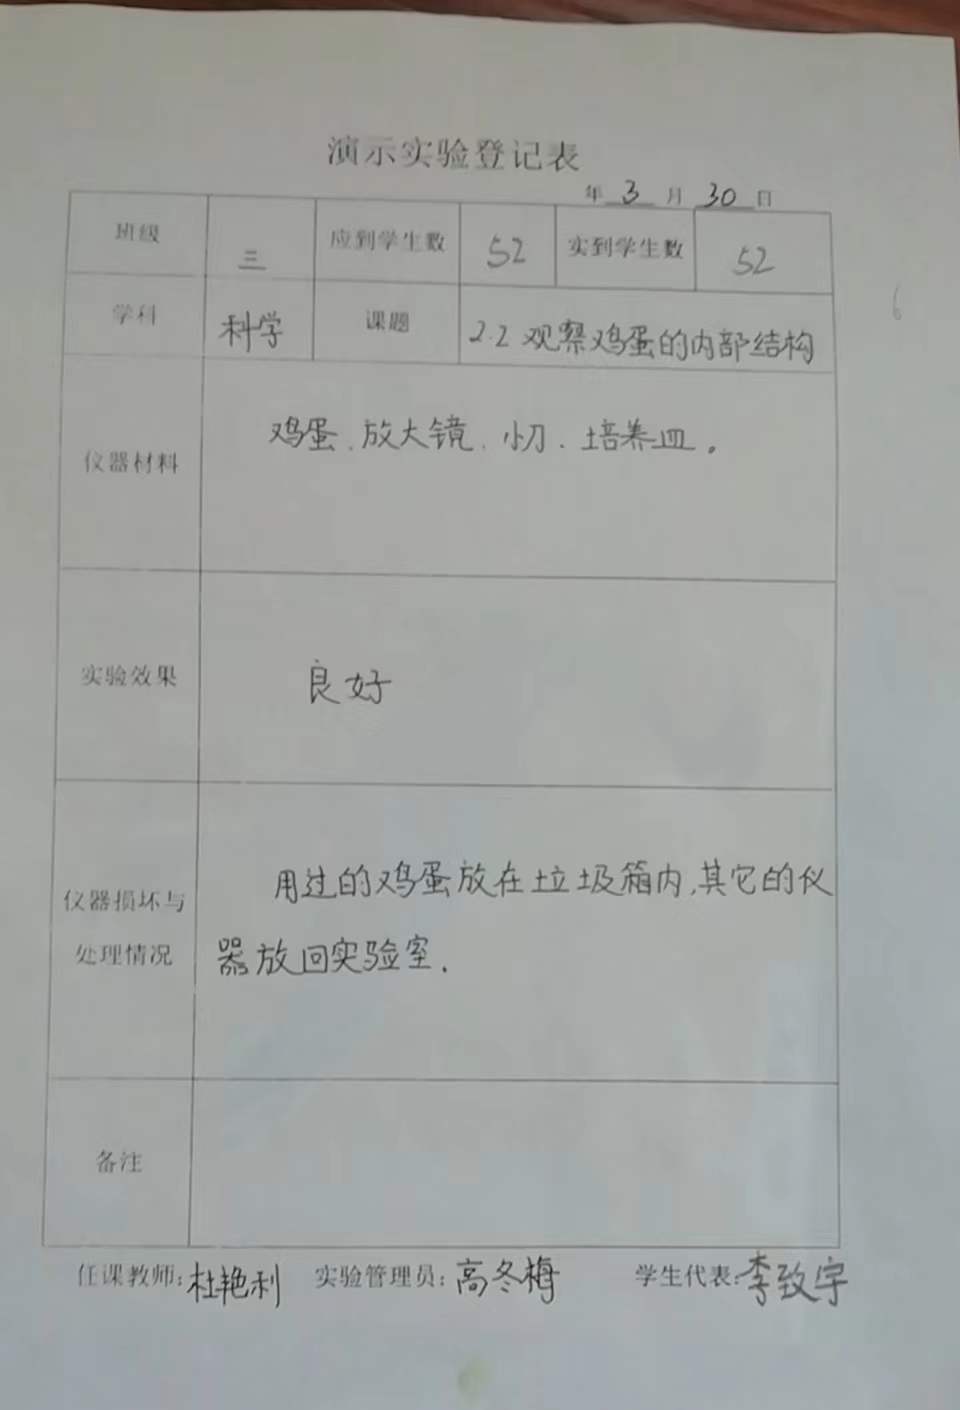 演示实验登记表
年 3 月 30 日
班级 三 应到学生数 52 实到学生数 52
学科 科学 课题 2.2 观察鸡蛋的内部结构
仪器材料 鸡蛋、放大镜、小刀、培养皿。
实验效果 良好
用过的鸡蛋放在垃圾箱内,其它的仪
仪器损坏与
处理情况 器放回实验室.
备注
任课教师:杜艳利 实验管理员:高冬梅 学生代表:李致宇